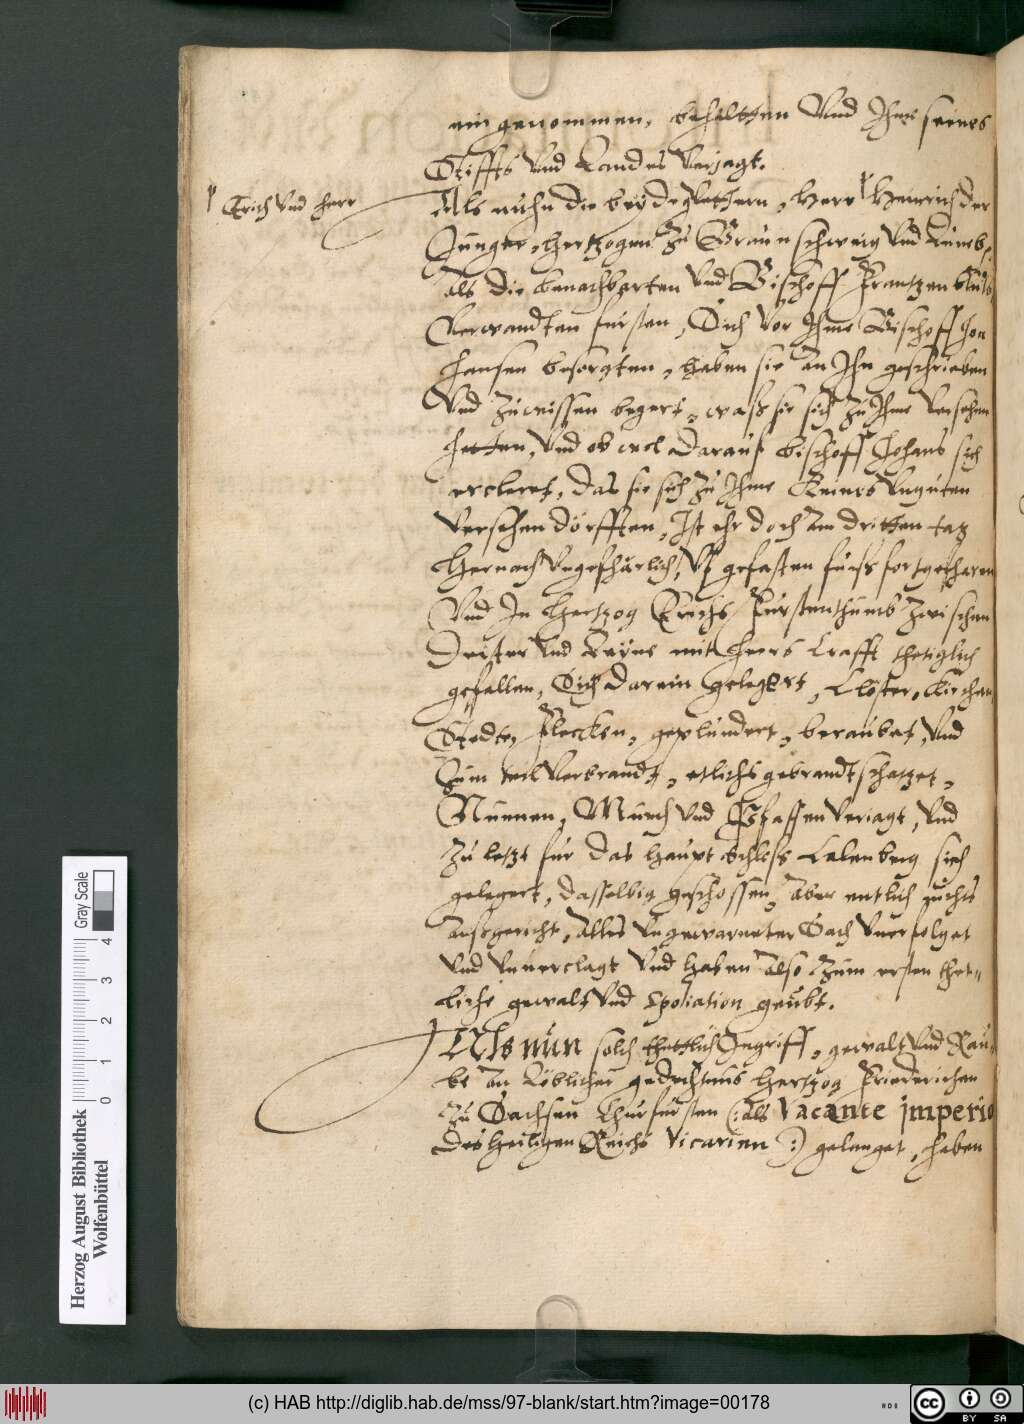 eingenommen, behaltten Vnd Ihme seines
Stiffts Vnd Landes Veriagt.
Erich Vnd Herr
Als nuhn die beyde gVettern, Herr Heinrich der
Junger, Hertzogen zu Braunschweig Vnd Luneb.
als die benachbarten Vnd Bischoff Frantzen bluts
Verwandten fursten, Sich Vor Ihme Bischoff Jo-
hansen besorgten, haben sie an Ihn geschrieben
Vnd zuwissen begert, waß sie sich zu Ihme Versehen
hetten, Vnd ob wol darauf bischoff Johans sich
ercleret, das sie sich zu Ihme Keines Vnguten
Versehen dörfften, Ist ehr doch am dritten tag
Hernach Vngefharlich, Vf gefasten fuess fortgefharen
Vnd In Hertzog Erichs Furstenthumb zwischen
Deister Vnd Leyne mit Heers Krafft thetiglich
gefallen, Sich darein gelegert, Clöster, Kirchen
Stedte, Flecken, geplundert, beraubet, Vnd
Zum teil Verbrandt, etlichs gebrandtschatzet,
Nunnen, Munch Vnd Pfaffen Veriagt, Vnd
zu letzt fur das Haupt Schloß Calenberg sich
gelegert, dasselbig geschossen, aber entlich nichts
außgericht, Alles Vngewarneter Sach Vnerfolget
Vnd Vnuerclagt Vnd haben also zum ersten thet-
liche gewalt Vnd Spoliation geubt.
Als nun solch thettlich Ingriff, gewalt Vnd Rau-
be an Löblicher gedechtnus Hertzog Friederichen
zu Sachsen Churfursten (: als Vacante imperio
des Heiligen Reichs Vicarien :) gelanget, haben
Herzog August Bibliothek
Wolfenbüttel
Gray Scale
0 1 2 3 4
(c) HAB http://diglib.hab.de/mss/97-blank/start.htm?image=00178
cc BY SA